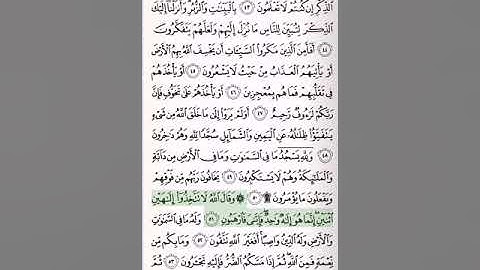 ٱلذِّكْرِ إِن كُنتُمْ لَا تَعْلَمُونَ ٤٣ بِٱلْبَيِّنَٰتِ وَٱلزُّبُرِ وَأَنزَلْنَآ إِلَيْكَ
ٱلذِّكْرَ لِتُبَيِّنَ لِلنَّاسِ مَا نُزِّلَ إِلَيْهِمْ وَلَعَلَّهُمْ يَتَفَكَّرُونَ
٤٤ أَفَأَمِنَ ٱلَّذِينَ مَكَرُوا۟ ٱلسَّيِّـَٔاتِ أَن يَخْسِفَ ٱللَّهُ بِهِمُ ٱلْأَرْضَ
أَوْ يَأْتِيَهُمُ ٱلْعَذَابُ مِنْ حَيْثُ لَا يَشْعُرُونَ ٤٥ أَوْ يَأْخُذَهُمْ
فِى تَقَلُّبِهِمْ فَمَا هُم بِمُعْجِزِينَ ٤٦ أَوْ يَأْخُذَهُمْ عَلَىٰ تَخَوُّفٍ فَإِنَّ
رَبَّكُمْ لَرَءُوفٌ رَّحِيمٌ ٤٧ أَوَلَمْ يَرَوْا۟ إِلَىٰ مَا خَلَقَ ٱللَّهُ مِن شَىْءٍ
يَتَفَيَّؤُا۟ ظِلَٰلُهُۥ عَنِ ٱلْيَمِينِ وَٱلشَّمَآئِلِ سُجَّدًا لِّلَّهِ وَهُمْ دَٰخِرُونَ
٤٨ وَلِلَّهِ يَسْجُدُ مَا فِى ٱلسَّمَٰوَٰتِ وَمَا فِى ٱلْأَرْضِ مِن دَآبَّةٍ
وَٱلْمَلَٰٓئِكَةُ وَهُمْ لَا يَسْتَكْبِرُونَ ٤٩ يَخَافُونَ رَبَّهُم مِّن فَوْقِهِمْ
وَيَفْعَلُونَ مَا يُؤْمَرُونَ ۩ ٥٠ ۞ وَقَالَ ٱللَّهُ لَا تَتَّخِذُوٓا۟ إِلَٰهَيْنِ
ٱثْنَيْنِ إِنَّمَا هُوَ إِلَٰهٌ وَٰحِدٌ فَإِيَّٰىَ فَٱرْهَبُونِ ٥١ وَلَهُۥ مَا فِى ٱلسَّمَٰوَٰتِ
وَٱلْأَرْضِ وَلَهُ ٱلدِّينُ وَاصِبًا أَفَغَيْرَ ٱللَّهِ تَتَّقُونَ ٥٢ وَمَا بِكُم مِّن
نِّعْمَةٍ فَمِنَ ٱللَّهِ ثُمَّ إِذَا مَسَّكُمُ ٱلضُّرُّ فَإِلَيْهِ تَجْـَٔرُونَ ٥٣ ثُمَّ